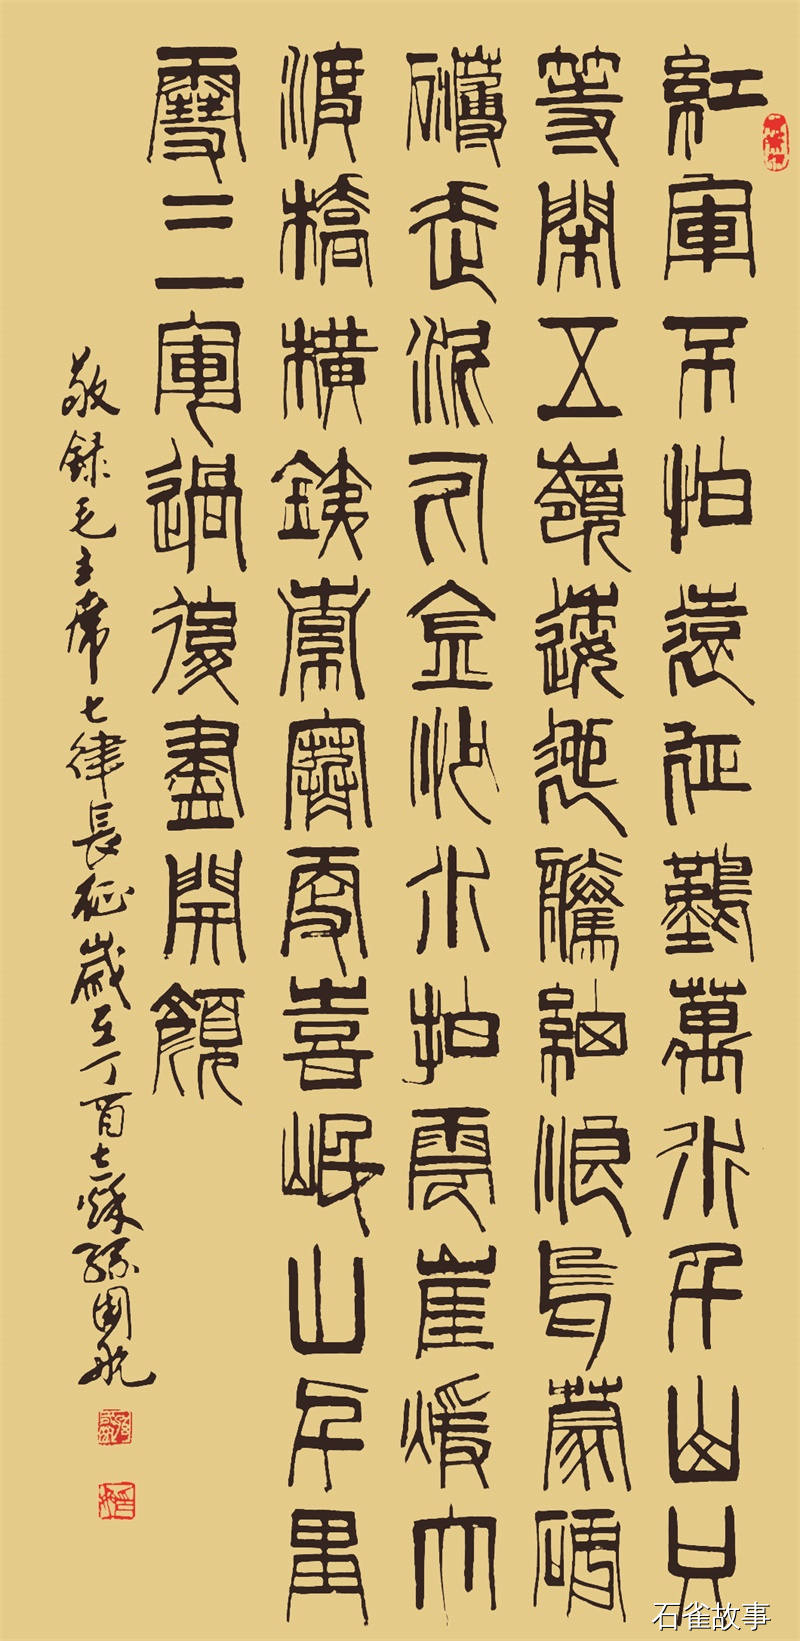 紅軍不怕遠征難萬水千山只
等閑五嶺逶迤騰細浪烏蒙磅
礴走泥丸金沙水拍雲崖暖大
渡橋橫鐵索寒更喜岷山千里
雪三軍過後盡開顏
敬録毛主席七律長征歲在丁酉之秋孫國
石雀故事